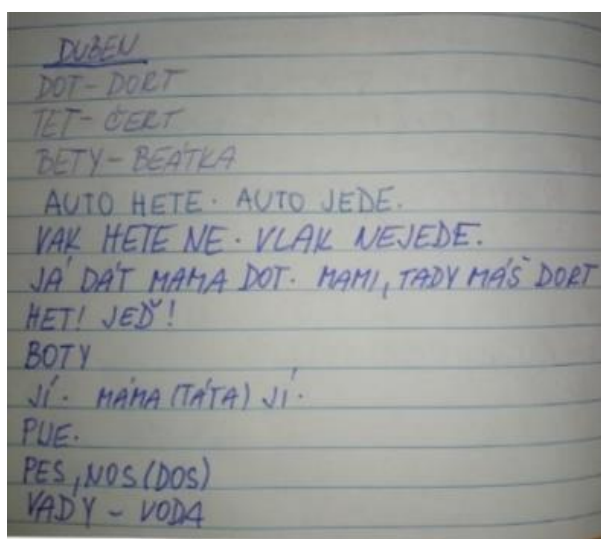 DUBEN
DOT - DORT
TET - ČERT
BETY - BEÁTKA
AUTO HETE. AUTO JEDE.
VAK HETE NE. VLAK NEJEDE.
JÁ DÁT MAMA DOT. MAMI, TADY MÁŠ DORT
HET! JEĎ!
BOTY
JÍ. MÁMA (TÁTA) JÍ.
PIJE.
PES, NOS (DOS)
VADY - VODA